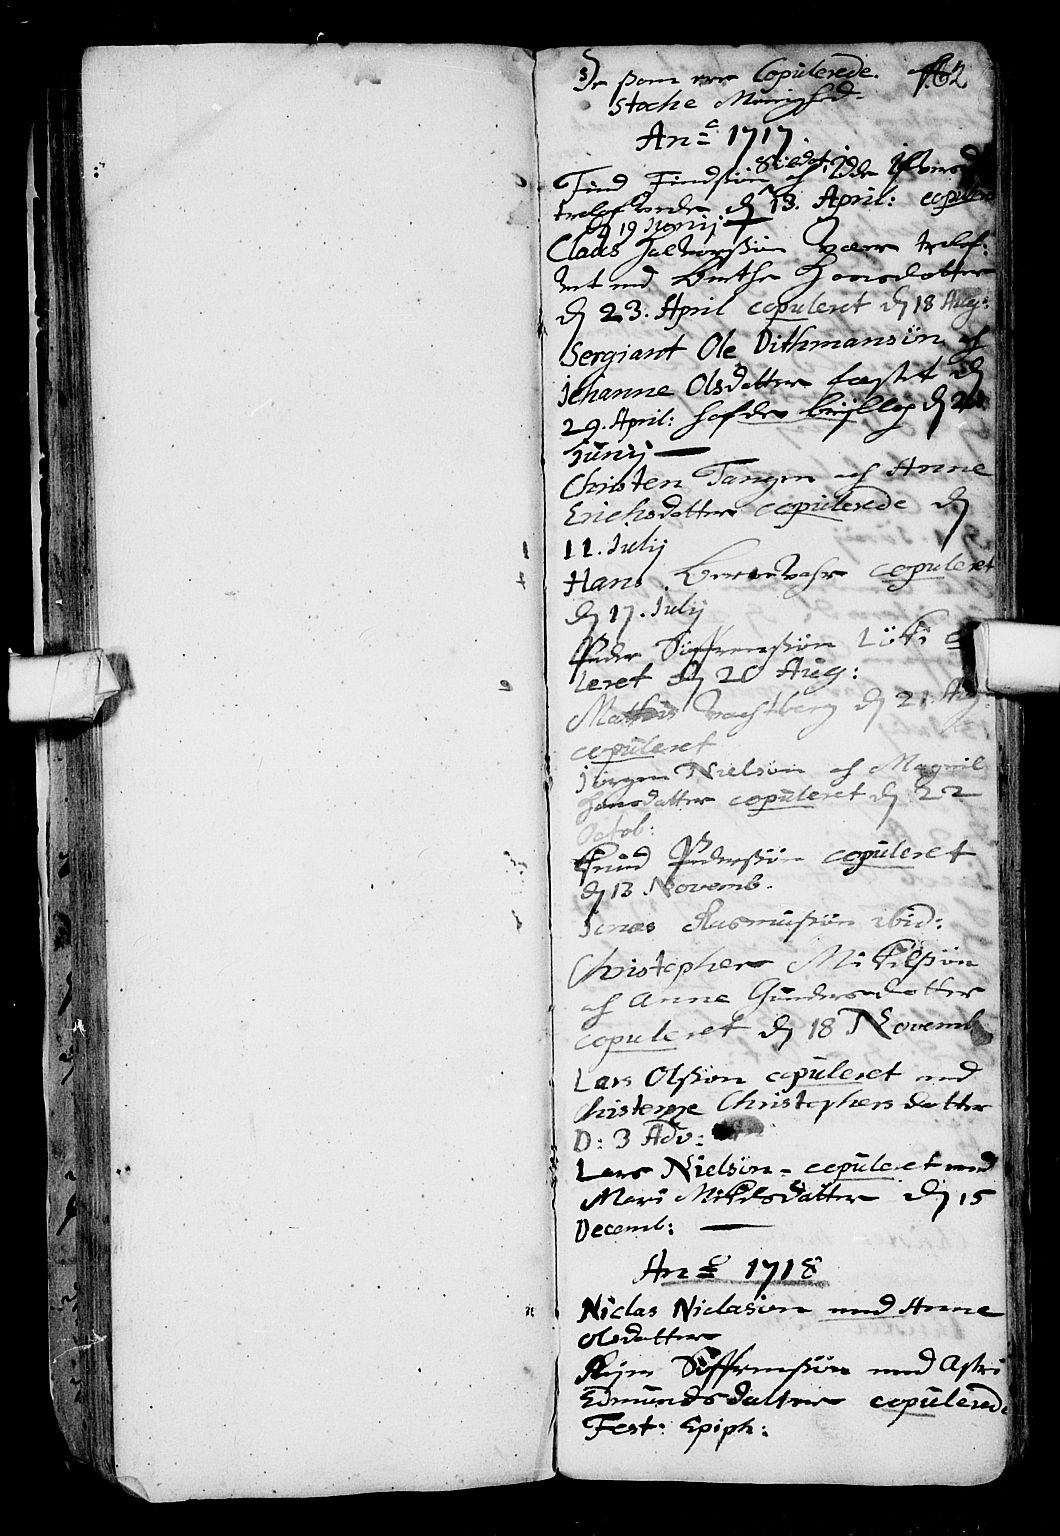 De som ere Copulerede. 162
Stoche Menighed
An: 1717.
Find Findsøn
trolofvede d 13. April: copuler
d 19 Junij
Claus Halvorsøn trolof-
vet med Berthe Hansdatter
d 23. April copuleret d 18 Aug:
Sergiant Ole Dithmansøn og
Johanne Olsdatter fæstet d
29. April: hafde brÿllop d
Junij
Christen Tangen og Anne
Erichsdatter copulerede d
11. Julij
Hans copuleret
d 17. Julij
Peder Søffrensøn
leret d 20 Aug:
Mathis d 21. Aug:
copuleret
Jørgen Nielsøn og Magnil
Hansdatter copuleret d 22
Octob:
Knud Pedersøn copuleret
d 13 Novemb.
Jonas Rasmusøn ibid:
Christopher Mikkelsøn
og Anne Gundersdatter
copuleret d 18 Novemb
Lars Olsøn copuleret med
Christophersdatter
D: 3 Adv:
Lars Nielsøn - copuleret med
Mari Mikelsdatter d 15
Decemb:
An: 1718
Niclas Niclasøn med Anne
Olsdatter
Søffrensøn med Astri
Edmundsdatter copulerede
Fest: Epiph: